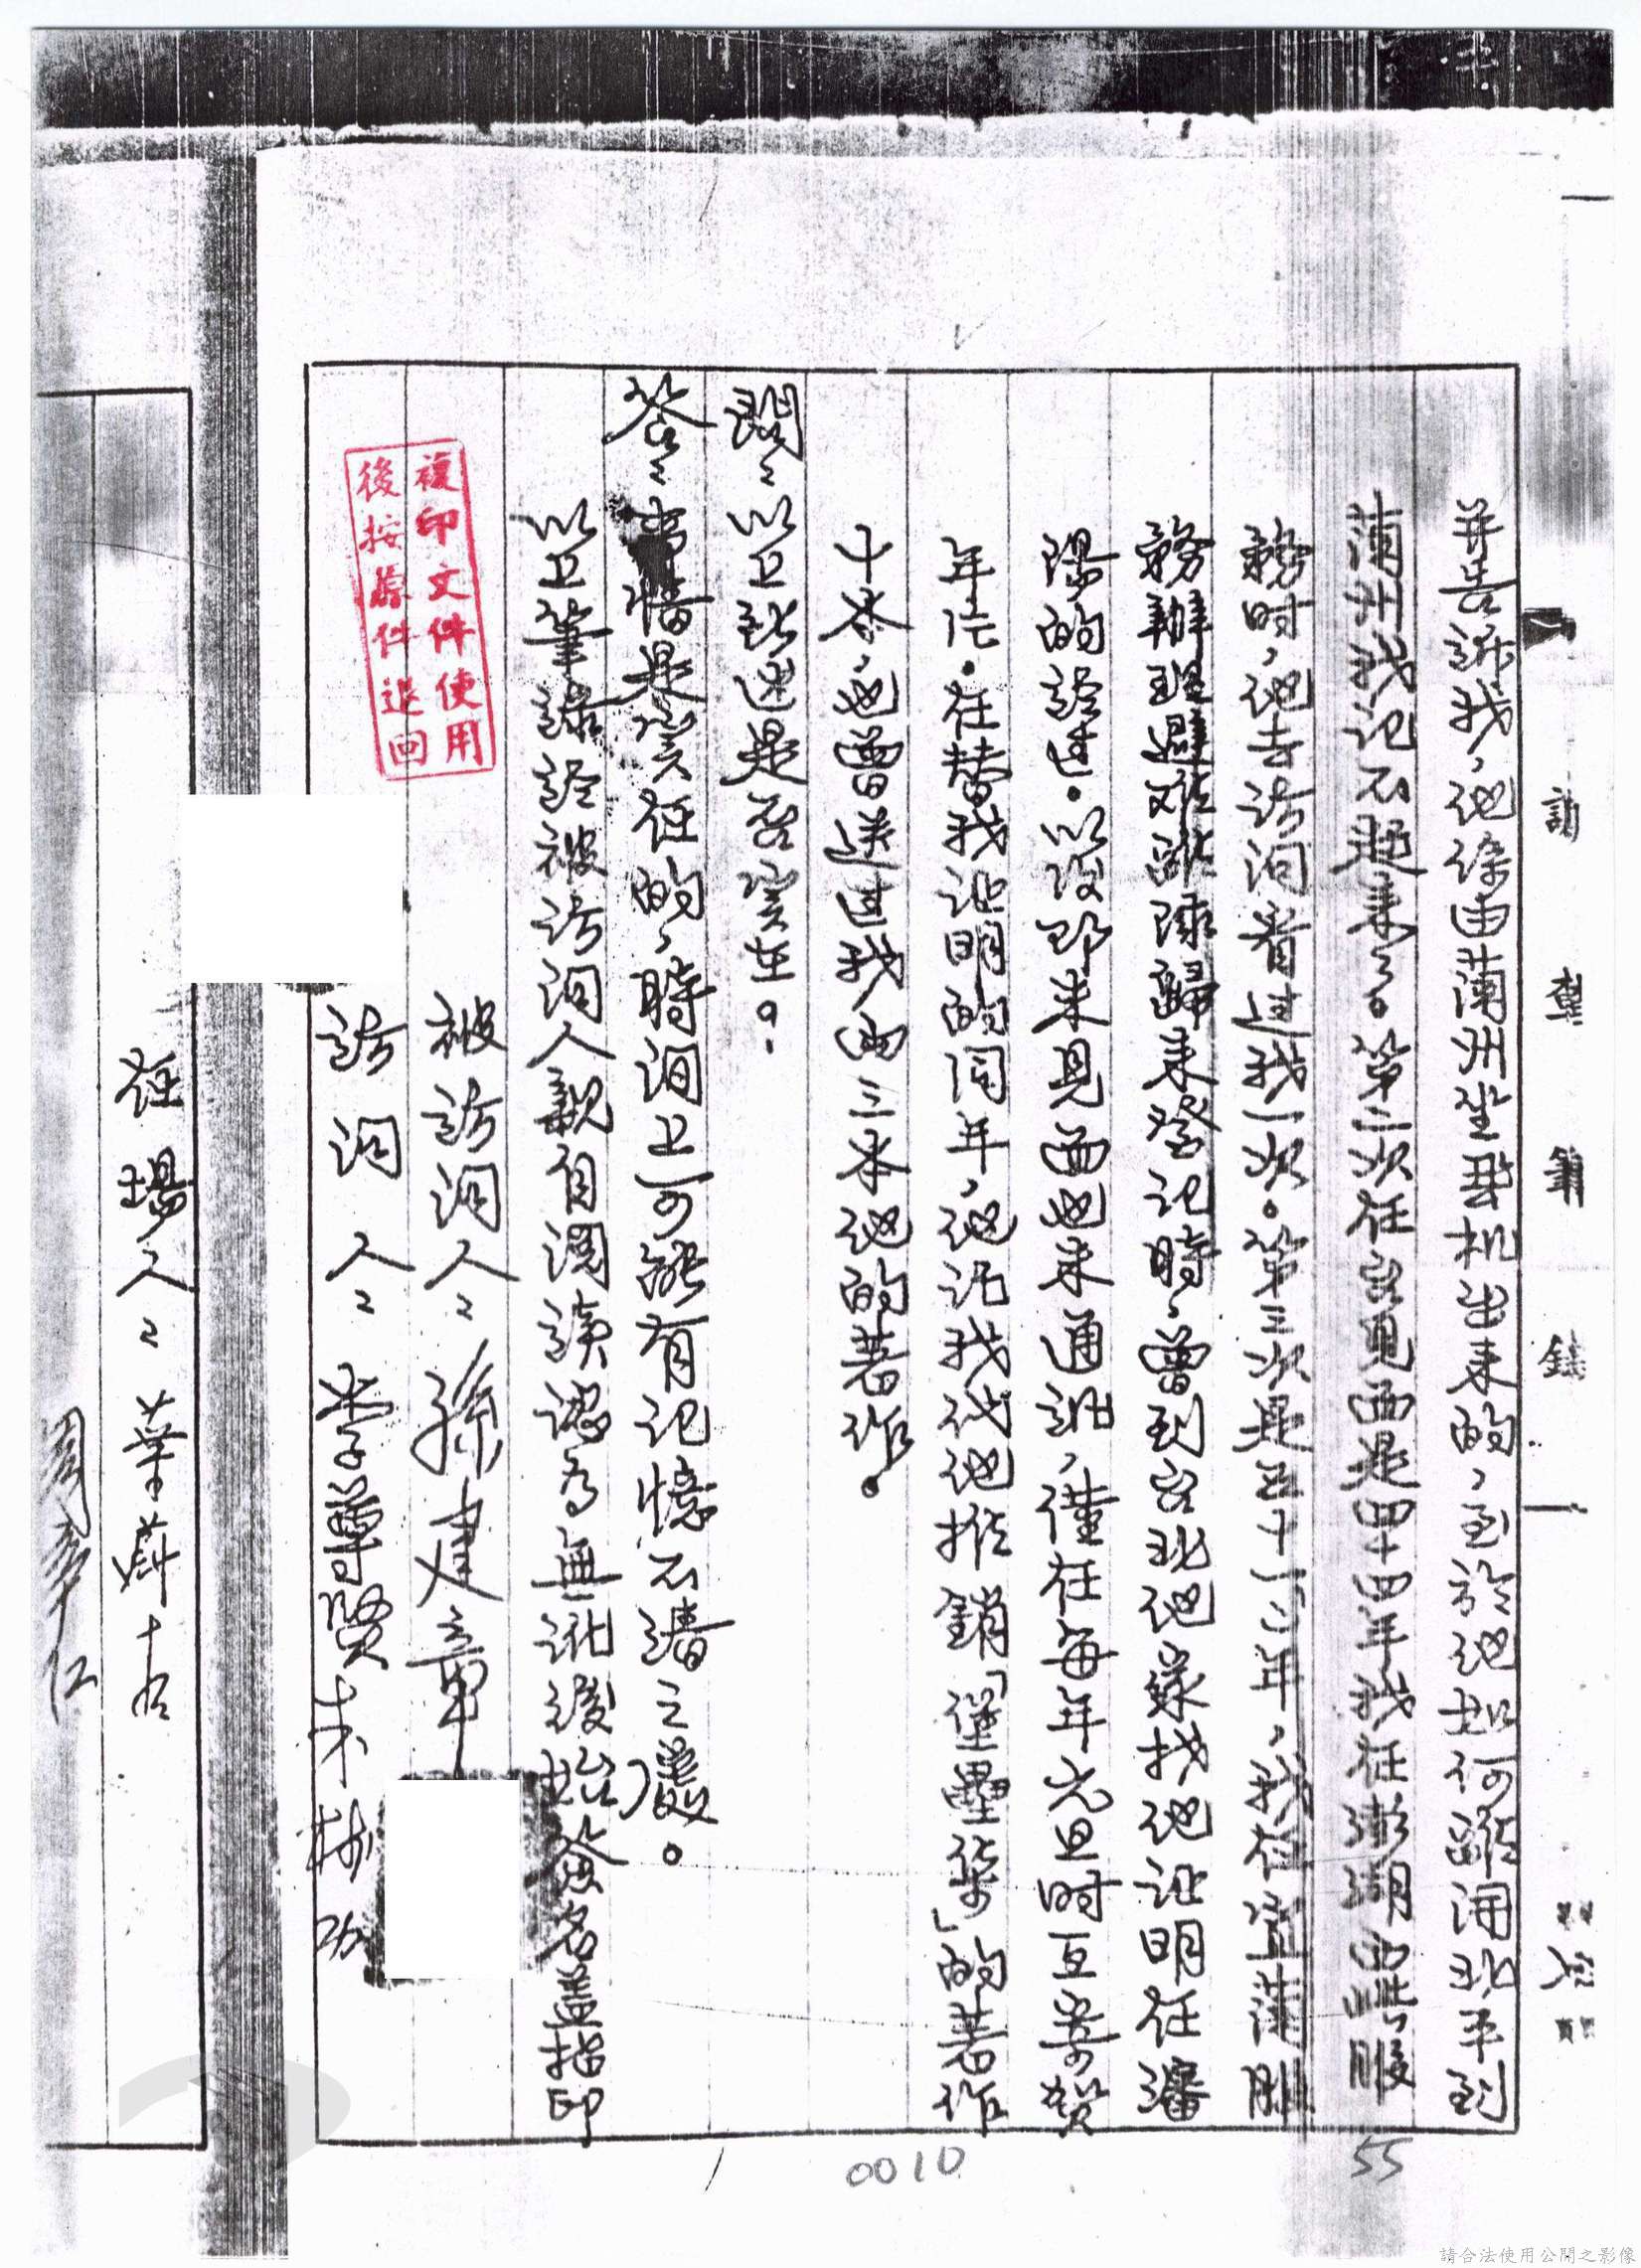 訪查筆錄
并告訴我，他係由蘭州坐飛机出來的，至於他如何離開北平到
蘭州我記不起來了。第二次在台見面是四十四年我在澎湖白沙服
務时，他去訪问看过我一次。第三次是五十一、二年，我在宜蘭服
務辦理避难離隊歸來登记時，曾到台北他家找他证明在瀋
陽的經过。以後即未見面也未通訊，僅在每年元旦时互寄賀
年片。在替我证明的同年，他托我代他推銷「堡壘集」的著作
十本，也曾送过我兩三本他的著作。
問：以上所述是否实在。
答：事情是实在的，時间上可能有记憶不清之處。
以上筆錄經被訪问人親自閱讀認为無訛後始簽名蓋指印
被訪问人：孫建章
訪问人：李尊賢
複印文件使用
後按原件退回
在場人：葉
0010
55
請合法使用公開之影像